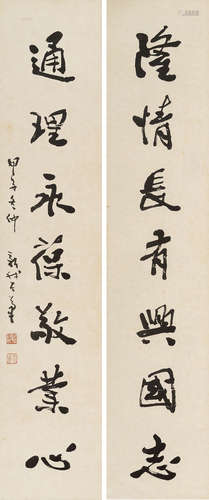 隆情長有興國志
通理永葆敬業心
甲子冬仲